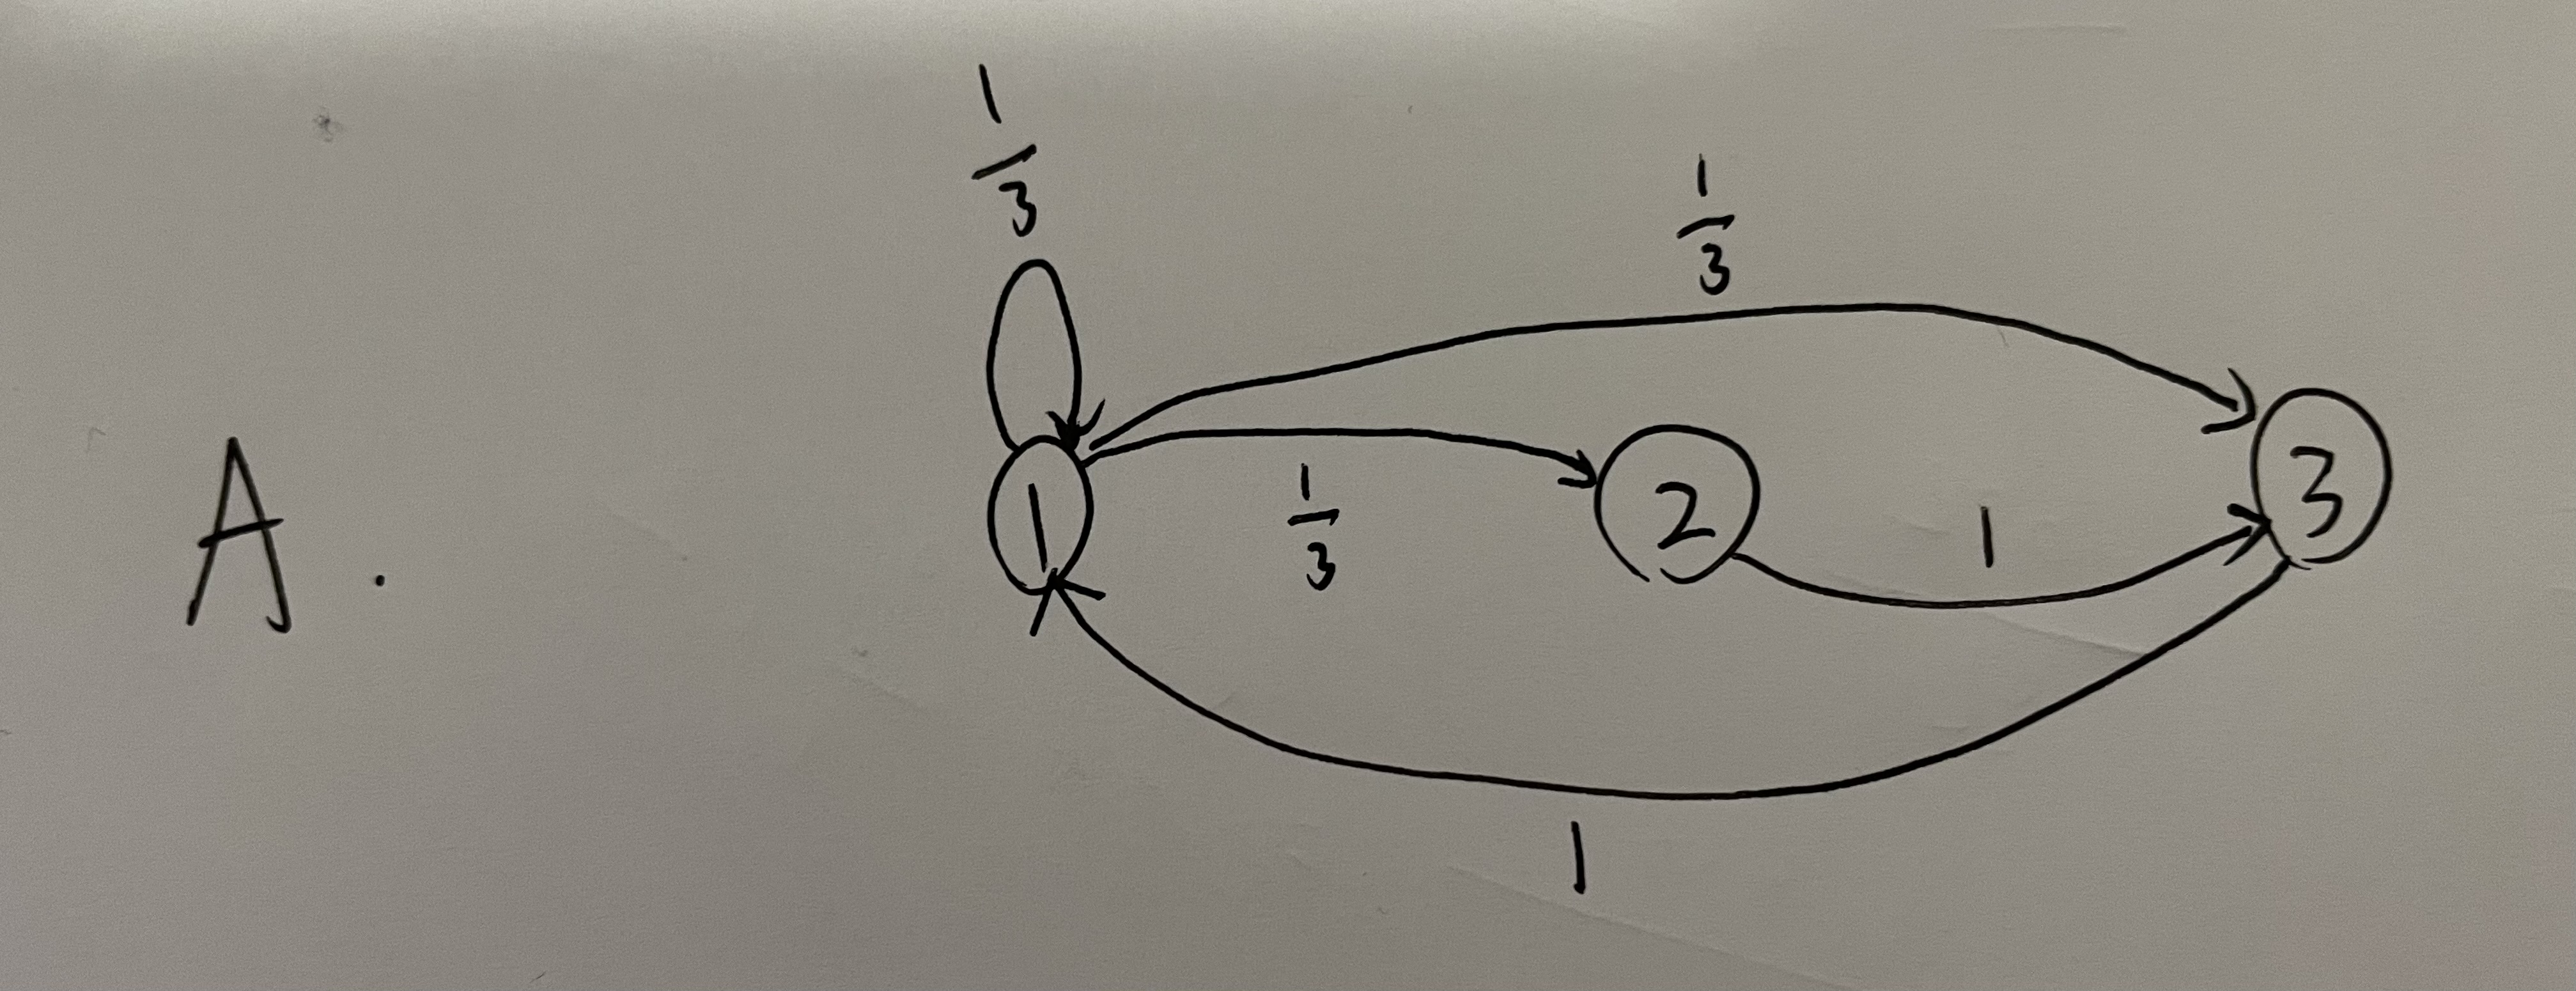 1/3
1/3
A.
1
1/3
2
1
3
1